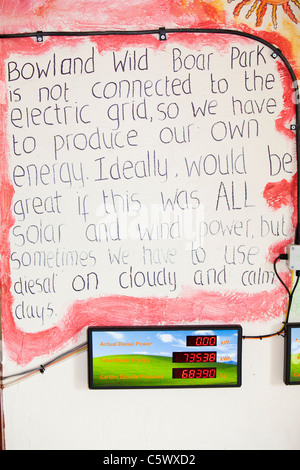 Bowland Wild Boar Park
is not connected to the
electric grid, so we have
to produce our own
energy. Ideally, would be
great if this was ALL
solar and wind power, but
sometimes we have to use
diesal on cloudy and calm
days.
Actual Diesel Power 0.00 kW
73538
68390
alamy
Image ID: C5WXD2
www.alamy.com